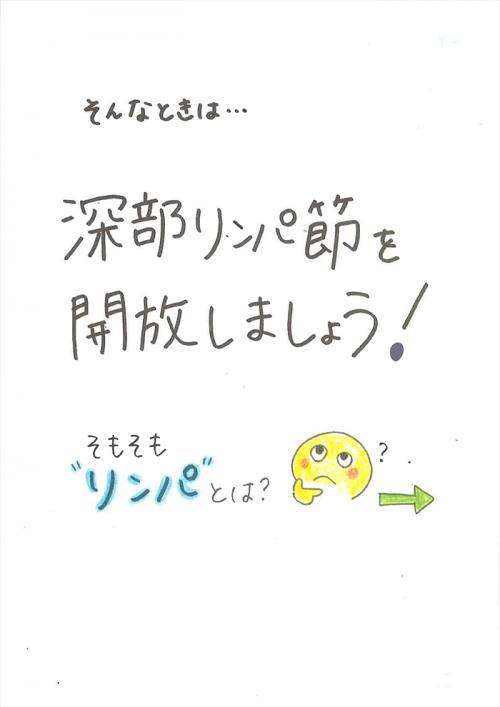 そんなときは…
深部リンパ節を
開放しましょう!
そもそも
"リンパ"とは?
?